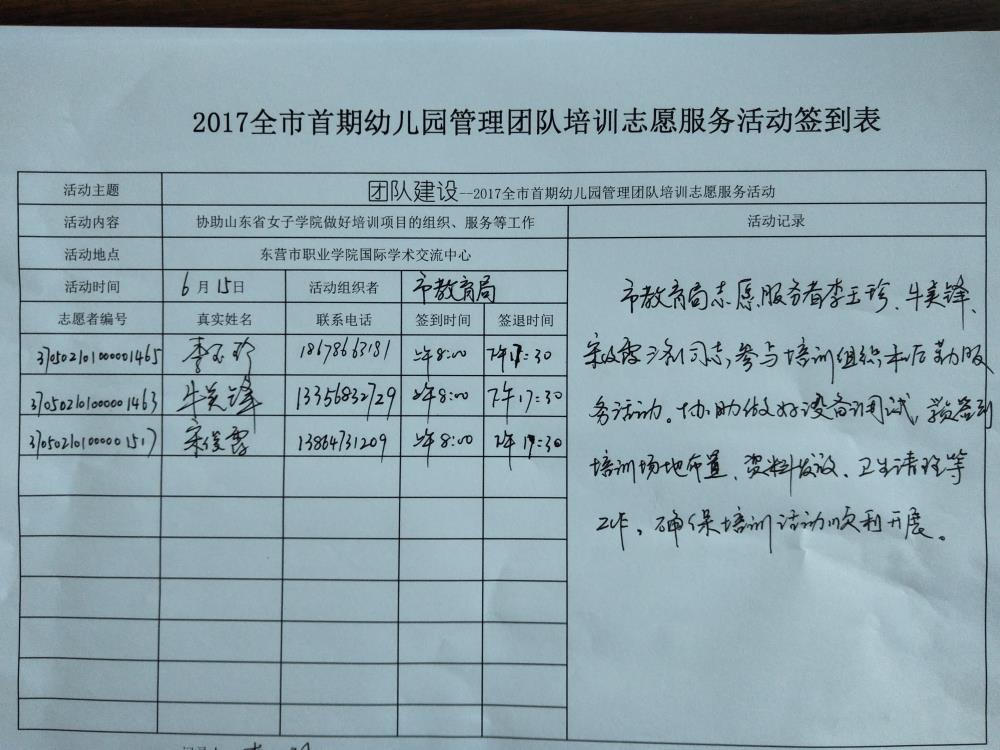 2017全市首期幼儿园管理团队培训志愿服务活动签到表
活动主题 团队建设--2017全市首期幼儿园管理团队培训志愿服务活动
活动内容 协助山东省女子学院做好培训项目的组织、服务等工作 活动记录
活动地点 东营市职业学院国际学术交流中心
活动时间 6月15日 活动组织者 市教育局
志愿者编号 真实姓名 联系电话 签到时间 签退时间
3705021010000001465 李玉珍 18678663181 上午8:00 下午17:30
3705021010000001463 牛美锋 13356832729 上午8:00 下午17:30
3705021010000001517 宋俊霞 13864731209 上午8:00 下午17:30
市教育局志愿服务者李玉珍、牛美锋、
宋俊霞三名同志,参与培训组织和后勤服
务活动。协助做好设备调试、签到
培训场地布置、资料发放、卫生清理等
工作,确保培训活动顺利开展。